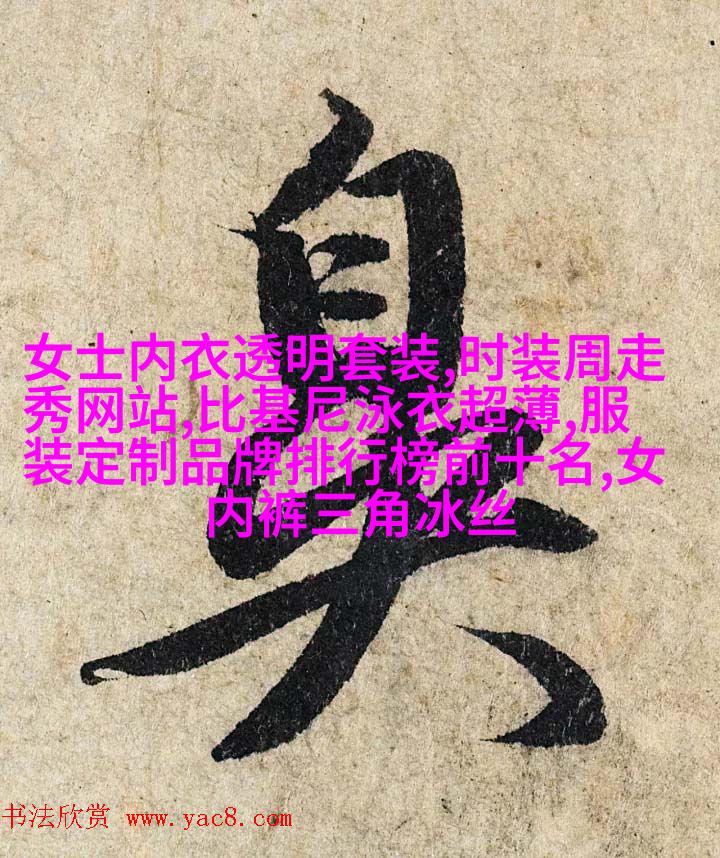 臭
女士内衣透明套装,时装周走
秀网站,比基尼泳衣超薄,服
装定制品牌排行榜前十名,女
内裤三角冰丝
书法欣赏 www.yac8.com